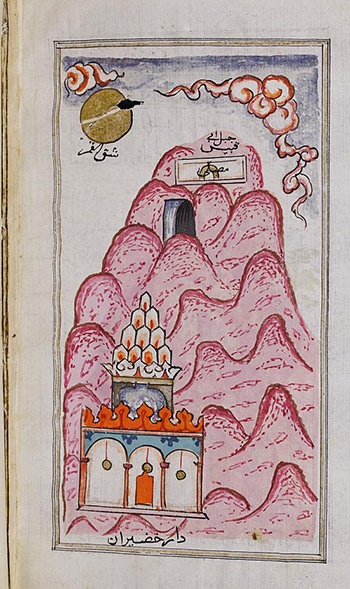 جبل ابی
قبیس
شق القمر
دار خضیران